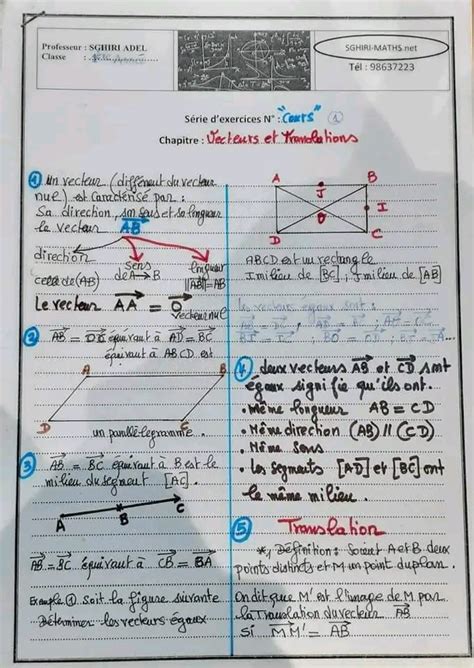 Professeur : SGHIRI ADEL
Classe :
SGHIRI-MATHS.net
Tél : 98637223
Série d'exercices N° : "Cours" 1
Chapitre : Vecteurs et Translations
1 Un vecteur (différent du vecteur
nul) est caractérisé par :
Sa direction, son sens et sa longueur
le vecteur AB
direction
celle de (AB)
sens
de A → B
longueur
||AB|| = AB
Le vecteur AA = O
vecteur nul
2 AB = DC équivaut à AD = BC
équivaut à ABCD est
A B
D C
un parallélogramme.
3 AB = BC équivaut à B est le
milieu du segment [AC].
A B C
AB = BC équivaut à CB = BA
Exemple 1 Soit la figure suivante
Déterminer les vecteurs égaux
A J B
I
O
D C
ABCD est un rectangle
I milieu de [BC], J milieu de [AB]
Les vecteurs égaux sont :
4 deux vecteurs AB et CD sont
égaux signifie qu'ils ont.
• Même longueur AB = CD
• Même direction (AB) // (CD)
• Même sens
• Les segments [AD] et [BC] ont
le même milieu.
5 Translation
*, Définition : Soient A et B deux
points distincts et M un point du plan.
On dit que M' est l'image de M par
la Translation du vecteur AB
si MM' = AB